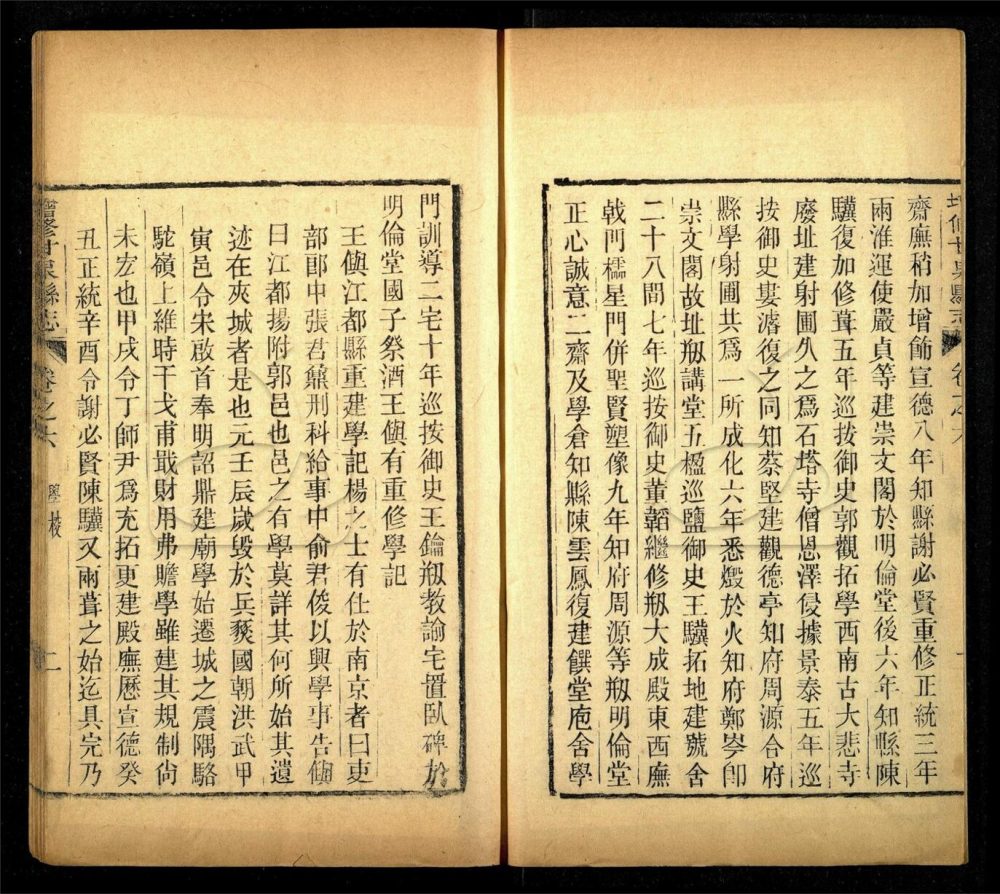 齋廡稍加增飾宣德八年知縣謝必賢重修正統三年
兩淮運使嚴貞等建崇文閣於明倫堂後六年知縣陳
驥復加修葺五年巡按御史郭觀拓學西南古大悲寺
廢址建射圃久之爲石塔寺僧恩澤侵據景泰五年巡
按御史婁濬復之同知蔡堅建觀德亭知府周源合府
縣學射圃共爲一所成化六年悉燬於火知府鄭岑卽
崇文閣故址剏講堂五楹巡鹽御史王驥拓地建號舍
二十八間七年巡按御史董韜繼修剏大成殿東西廡
戟門櫺星門併聖賢塑像九年知府周源等剏明倫堂
正心誠意二齋及學倉知縣陳雲鳳復建饌堂庖舍學
門訓導二宅十年巡按御史王鑰剏教諭宅置臥碑於
明倫堂國子祭酒王㒜有重修學記
王㒜江都縣重建學記楊之士有仕於南京者曰吏
部郎中張君鼐刑科給事中俞君俊以興學事告㒜
曰江都揚附郭邑也邑之有學莫詳其何所始其遺
迹在夾城者是也元壬辰嵗毀於兵燹國朝洪武甲
寅邑令朱啟首奉明詔鼎建廟學始遷城之震隅駱
駝嶺上維時干戈甫戢財用弗贍學雖建其規制尙
未宏也甲戌令丁師尹爲充拓更建殿廡歷宣德癸
丑正統辛酉令謝必賢陳驥又兩葺之始迄具完乃
增修甘泉縣志
卷之六
學校
二